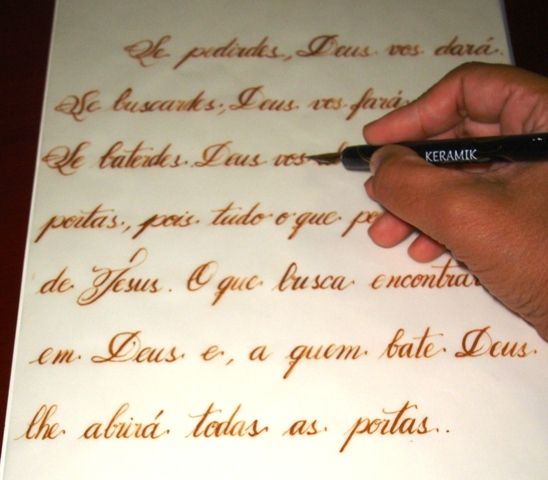 Se pedirdes, Deus vos dará.
Se buscardes, Deus vos fará
Se baterdes Deus vos
KERAMIK
portas, pois tudo o que
de Jesus. O que busca encontrar
em Deus e, a quem bate Deus
lhe abrirá todas as portas..